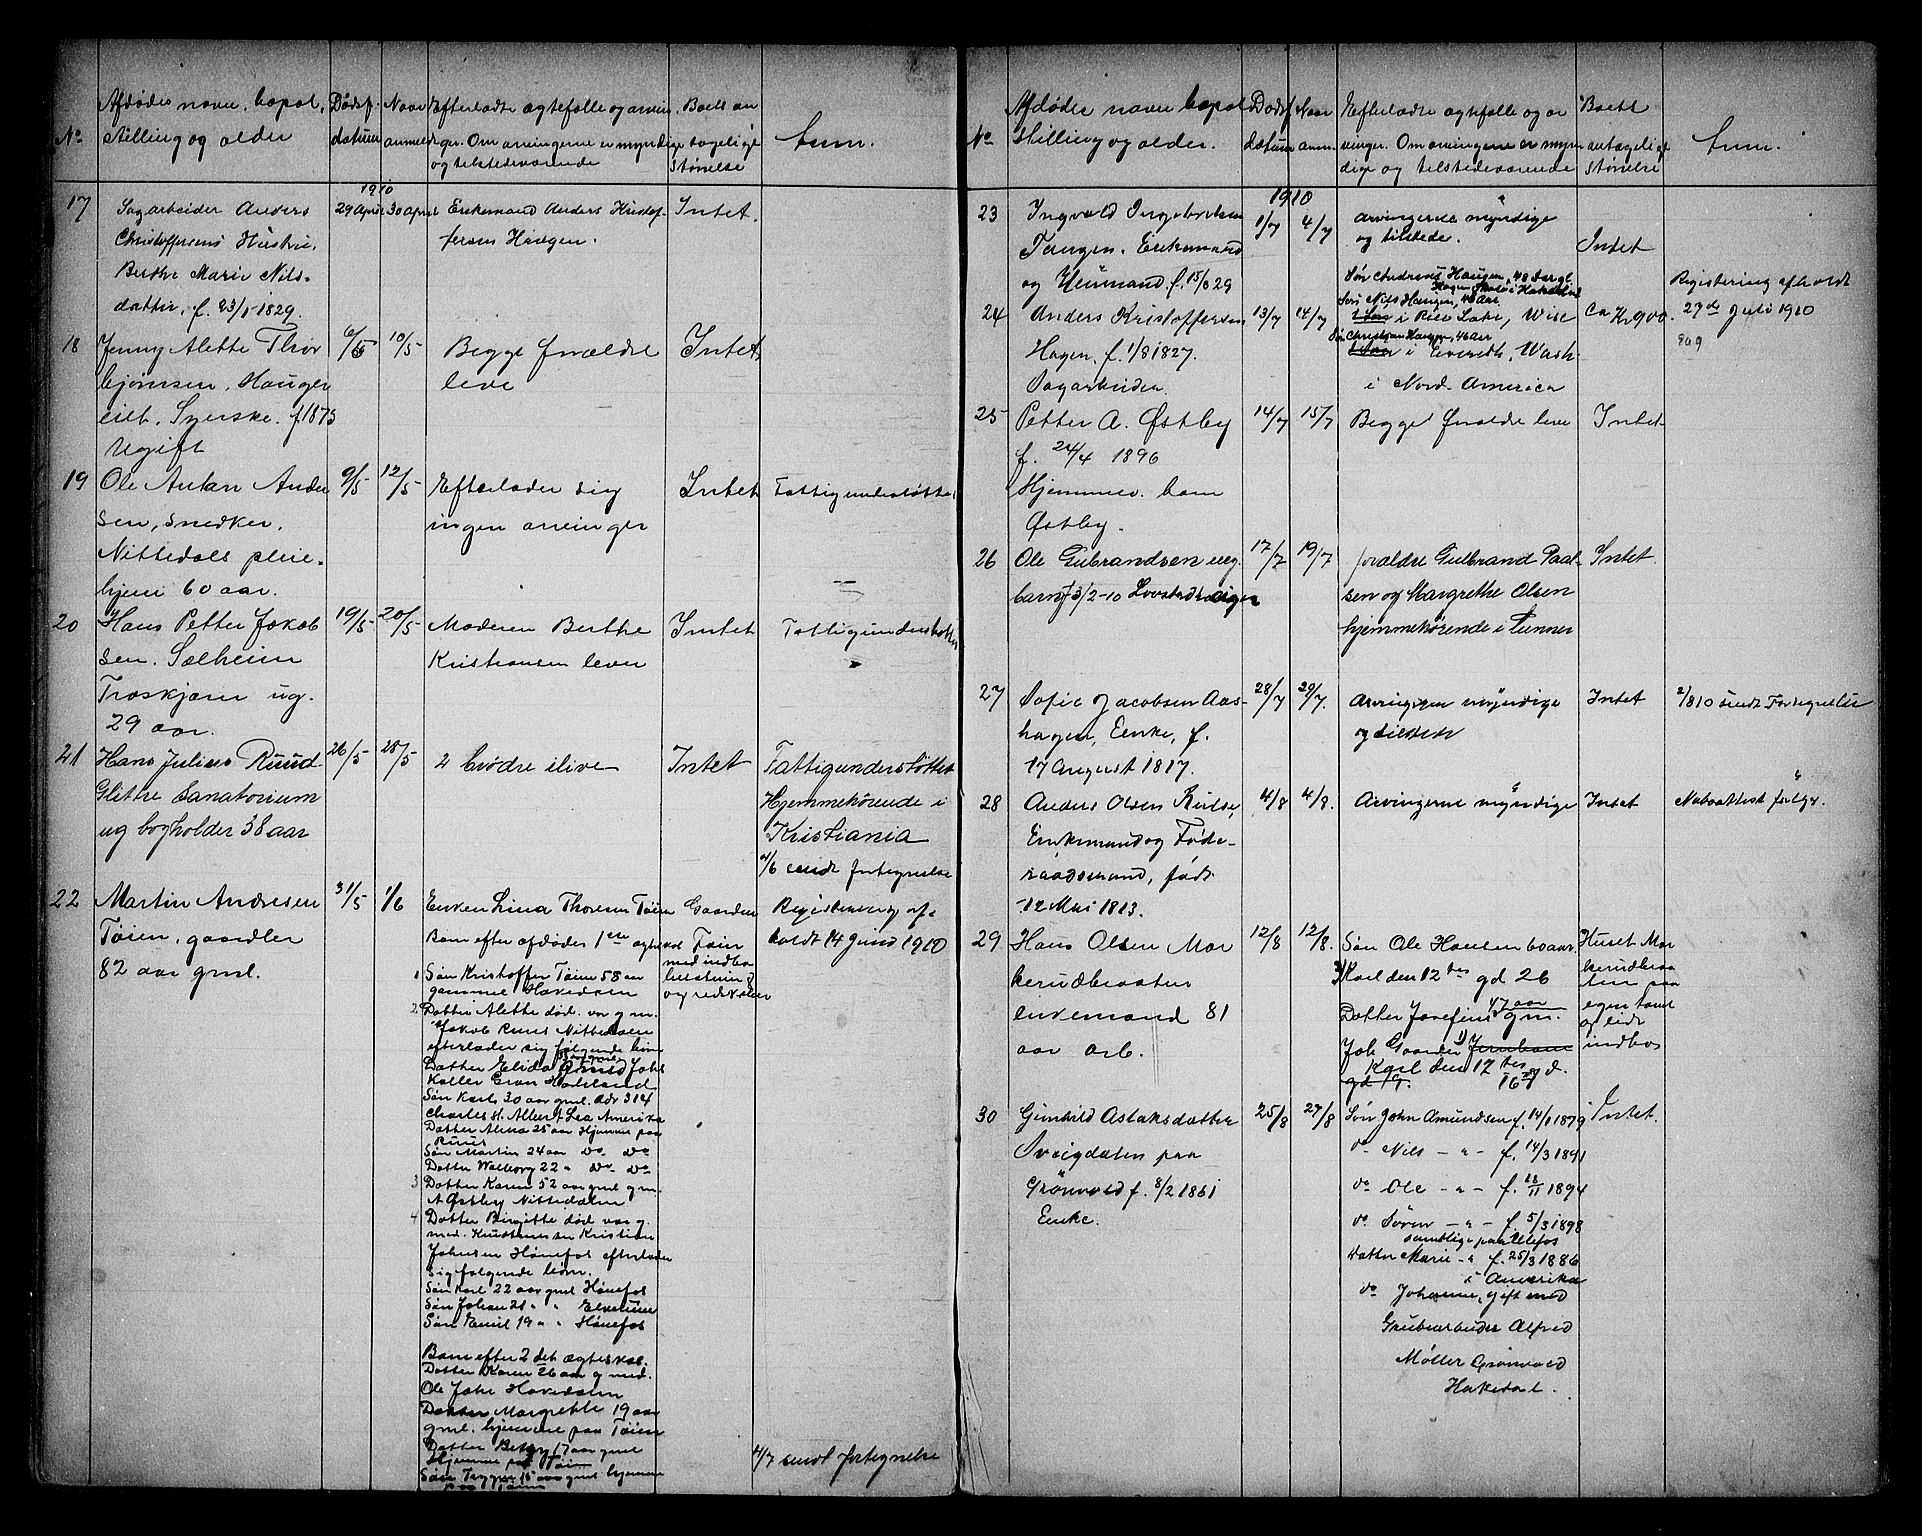 No
Afdødes navn, bopæl,
stilling og alder
Dødsf.
datum
Naar
anmeld
Efterladte ægtefælle og arvin
ger. Om arvingerne er myndige
og tilstedeværende
Boets an
tagelige
størrelse
Anm.
1910
17
Sagarbeider Anders
Christoffersens Hustru.
Berthe Marie Nils-
datter, f. 23/1-1829.
29 April
30 April
Enkemand Anders Kristof-
fersen Haugen.
Intet.
18
Jenny Alette Thor
bjørnsen, Haugen
eilt. Syerske. f 1875
Ugift
6/5
10/5
Begge forældre
leve
Intet
19
Ole Anton Ander
sen, snedker.
Nittedals pleie-
hjem 60 aar.
9/5
12/5
Efterlader sig
ingen arvinger
Intet
Fattigunderstøttet
20
Hans Petter Jakob
sen. Sælheim
Træskjærer ug.
29 aar.
19/5
20/5
Moderen Berthe
Kristiansen lever
Intet
Fattigunderstøttet
21
Hans Julius Ruud
Glittre Sanatorium
ug bogholder 38 aar
26/5
28/5
2 brødre ilive
Intet
Fattigunderstøttet
Hjemmehørende i
Kristiania
4/6 sendt fortegnelse
22
Martin Andresen
Tøien, gaardbr
82 aar gml.
31/5
1/6
Enken Lina Thoresen Tøien
Barn efter afdødes 1ere ægteskab
1 Søn Kristoffer Tøien 58 aar
gammel Hakedalen
2 Datter Alette død. var g. m.
Jakob Ruus Nittedalen
efterlader sig følgende børn
Datter Elida
Koller Gran Hadeland
Søn Karl 30 aar gml. Adr 314
Charles St. Albert Lea Amerika
Datter Alma 25 aar Hjemme paa
Ruus
Søn Martin 24 aar do do
Datter Walborg 22 " do do
3 Datter Karen 52 aar gml g m.
A Østby Nittedalen
4 Datter Birgitte død var g.
med. Kristian
Johnsen Hønefos efterlader
sig følgende børn.
Søn Karl 22 aar gml Hønefos
Søn Johan 21 " "
Søn Emil 19 " " Hønefos
Barn efter 2 det ægteskab.
Datter Karen 26 aar g med.
Ole Johr Hakedalen
Datter Margrethe 19 aar
gml. hjemme paa Tøien
Datter Betsy 17 aar gml
Hjemme paa Tøien
Søn Trygve 15 aar gml hjemme
paa Tøien
Gaarden
Tøien
med indbo
besetning
og redskaber
Registrering af-
holdt 14 juni 1910
4/7 sendt fortegnelse
No
Afdødes navn bopæl
stilling og alder.
Dødsf
datum
Naar
anm.
Efterladte ægtefælle og ar
vinger. Om arvingerne er myn
dige og tilstedeværende
Boets
antagelige
størrelse
Anm.
1910
23
Ingvald Ingebretsen
Tangen. Enkemand
og Husmand. f. 15/8 29
1/7
4/7
Arvingerne myndige
og tilstede.
Intet
24
Anders Kristoffersen
Hagen, f. 1/8 1827.
Sagarbeider.
13/7
14/7
Søn Andreas Haugen, 48 Aar gl.
Hagen Skole i Hakedal
Søn Nils Haugen, 40 Aar
1 Søn i Rice Lake, Wisc
Søn Christian Haugen, 46 Aar
1 Søn i Everett, Wash-
i Nord. America
Ca Kr 900.
Registrering afholdt
27de Juli 1910
25
Petter A. Østby
f. 24/4 1896
Hjemmev. barn
Østby.
14/7
15/7
Begge forældre leve
Intet
26
Ole Gulbrandsen ueg.
barn f 3/2-10
17/7
19/7
forældre Gulbrand Paal-
sen og Margrethe Olsen
hjemmehørende i Lunner
Intet.
27
Sofie Jacobsen Aas-
hagen, Enke, f.
17 August 1817.
28/7
29/7.
Arvingerne myndige
og tilstede
Intet
2/8 10 sendt Fortegnelse
28
Anders Olsen Rulse,
Enkemand og Føde-
raadsmand, født
12 Mai 1813.
4/8
4/8.
Arvingerne myndige
Intet
Naboattest følge.
29
Hans Olsen Mar
kerudbraaten
enkemand 81
aar arb.
12/8
12/8.
Søn Ole Hansen 60 aar.
Karl den 12tes gd 26
47 aar
Datter Josefine g m.
Joh. Gaarder Jernbane
Karl den 12tes gd.
gd 19. 16
Huset Mar
kerudbraa
ten paa
egen tomt
og lidt
indbo
30
Gunhild Aslaksdatter
Sveigdalen paa
Grønvold f. 8/2 1861
Enke.
25/8
27/8
Søn John Amundsen f. 14/1 1879
do Nils - " - f. 14/3 1891
do Ole - " - f. 18/11 1894
do Søren - " - f. 5/3 1898
samtlige paa Ulefos
Datter Marie - " f. 25/3 1886
i Amerika
do Johanne, gift med
Grubearbeider Alfred
Møller Grønvold
Hakedal.
Intet.